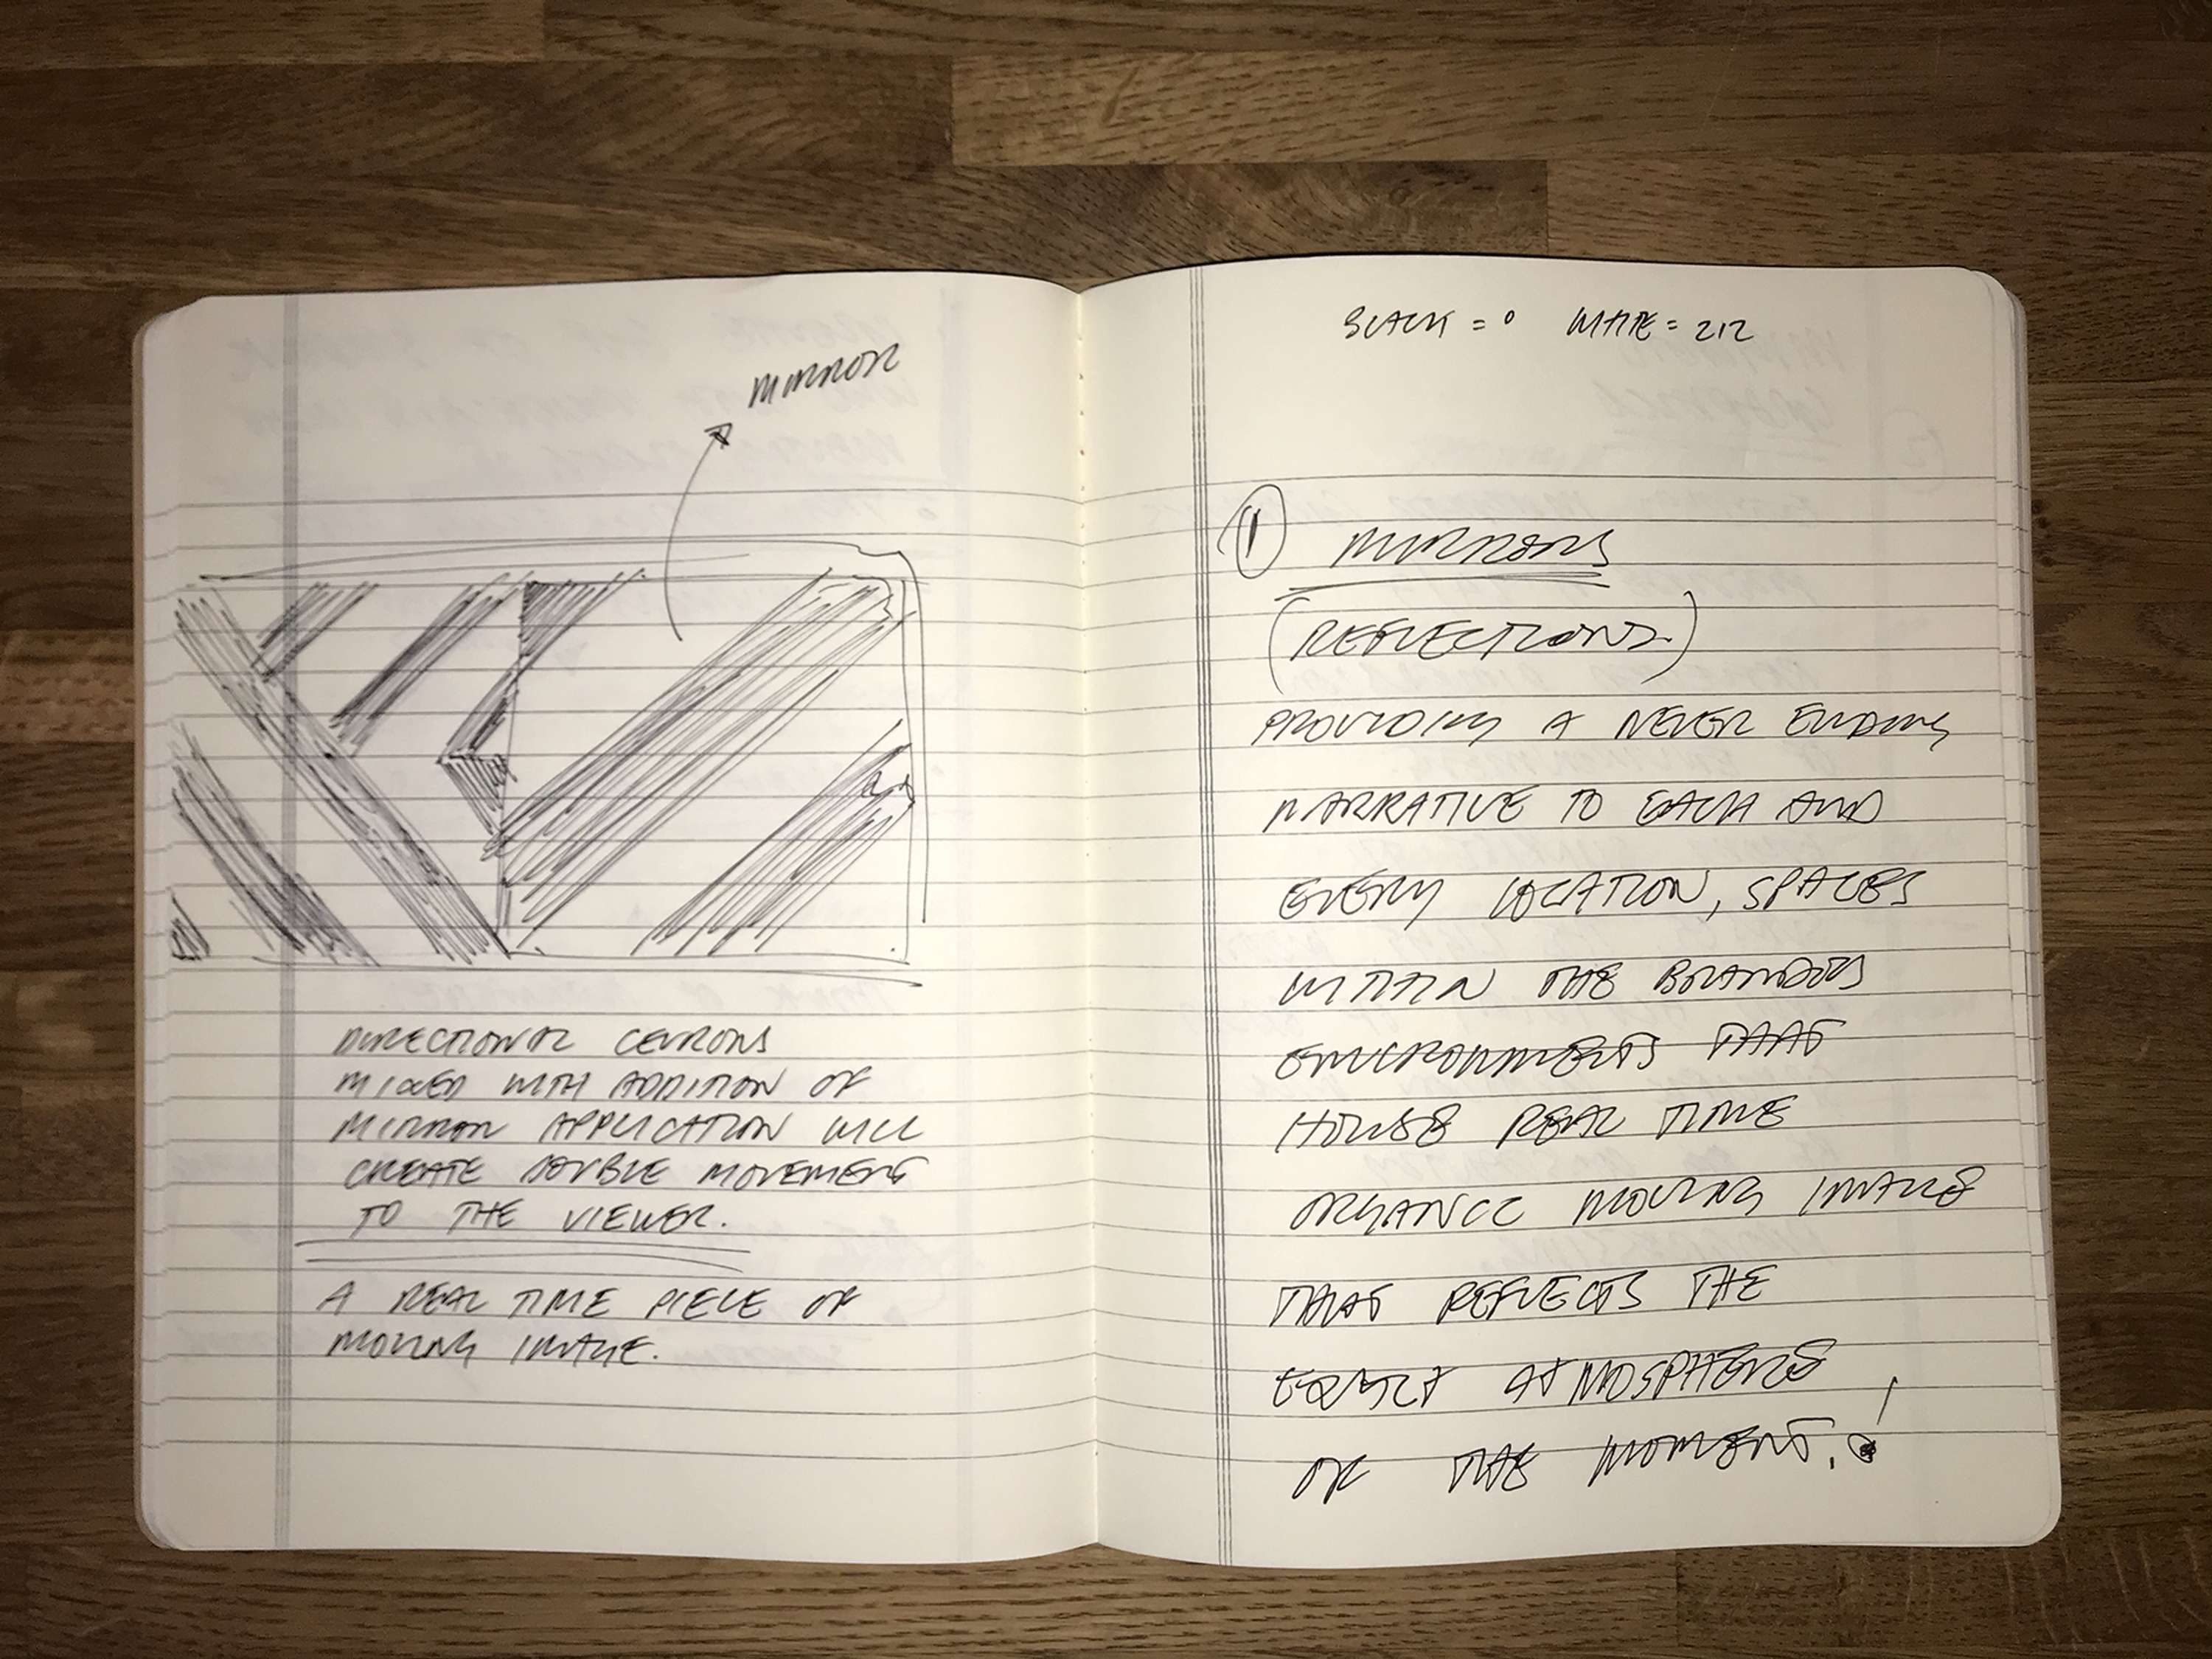 MIRROR
DIRECTIONAL CEVRONS
MIXED WITH ADDITION OF
MIRROR APPLICATION WILL
CREATE DOUBLE MOVEMENT
TO THE VIEWER.
A REAL TIME PIECE OF
MOVING IMAGE.
BLACK = 0 WHITE = 212
1 MIRRORS
(REFLECTIONS)
PROVIDING A NEVER ENDING
NARRATIVE TO EACH AND
EVERY LOCATION, SPACES
WITHIN THE BRANDS
ENVIRONMENTS THAT
HOUSE REAL TIME
ORGANIC MOVING IMAGE
THAT REFLECTS THE
EXACT ATMOSPHERE
OF THE MOMENT.!